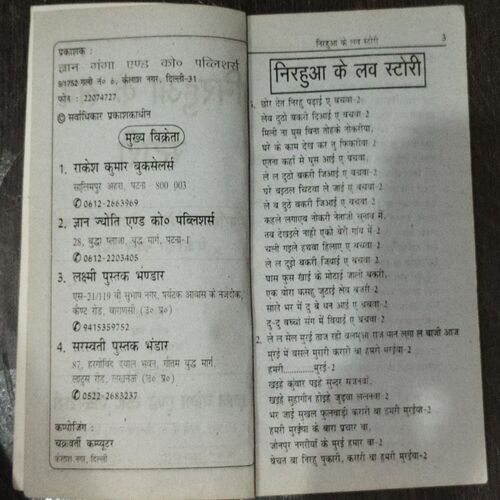 प्रकाशक :
ज्ञान गंगा एण्ड को० पब्लिशर्स
9/1752 गली नं० 6, कैलाश नगर, दिल्ली-31
फोन : 22074727
© सर्वाधिकार प्रकाशकाधीन
मुख्य विक्रेता
1. राकेश कुमार बुकसेलर्स
सद्लिमपुर अहरा, पटना 800 003
✆ 0612-2663969
2. ज्ञान ज्योति एण्ड को० पब्लिशर्स
28, बुद्धा प्लाजा, बुद्ध मार्ग, पटना-1
✆ 0612-2203405
3. लक्ष्मी पुस्तक भंण्डार
एस-21/119 बी सुभाष नगर, पर्यटक आवास के नजदीक,
कैण्ट रोड, वाराणसी (उ० प्र०)
✆ 9415359752
4. सरस्वती पुस्तक भंडार
87, हरगोविंद दयाल भवन, गौतम बुद्ध मार्ग,
लाटूस रोड, लखनऊ (उ० प्र०)
✆ 0522-2683237
कम्पोजिंग :
चक्रवर्ती कम्प्यूटर
कैलाश नगर, दिल्ली
निरहुआ के लव स्टोरी 3
निरहुआ के लव स्टोरी
1. छोर देत निरहु पढ़ाई ए बचवा-2
लेव दुठो बकरी दिआई ए बचवा-2
मिली ना घुस बिना तोहके नोकरीया,
घरे के काम देख कर तु फिकरीया
एतना कहाँ से घुस आई ए बचवा,
ले ल दुठो बकरी जिआई ए बचवा-2
घरे बइठल चिटवा ले जाई ए बचवा
ले ब दुठो बकरी जिआई ए बचवा-2
कहले लगाएब नोकरी नेताजी चुनाव में,
तब देखइले नाही एको बेरी गांव में
चली गइले हथवा हिलाए ए बचवा-2
ले ल दुइो बकरी जिआई ए बचवा-2
घास फुस खाई के मोटाई जाली बकरी,
एक बोरा कसहु जुटाई लेब बजरी
साले भर में दु बे धन आई ए बचवा-2
दु-दु बच्चा संग में बियाई ए बचवा-2
2. ले ल सेल मुरई ताज रही बलमुआ राज पान लगा ल बाजी आज
मुरई में बसले मुरारी करारी बा हमरी मरईया-2
हमरी..............मुरई-2
खइहे कुंवार पइहे सुन्दर सजनवाँ,
खइहे सुहागीन होइहे जुइवा ललनवा
भर जाई मुखल फुलवाड़ी करारी बा हमरी मुरईया-2
हमरी मुरईया के बारा प्रचार बा,
जोनपुर नगरीयाँ के मुरई हमार बा-2
बेचत बा निरहु पुकारी, करारी बा हमरी मुरईया-2